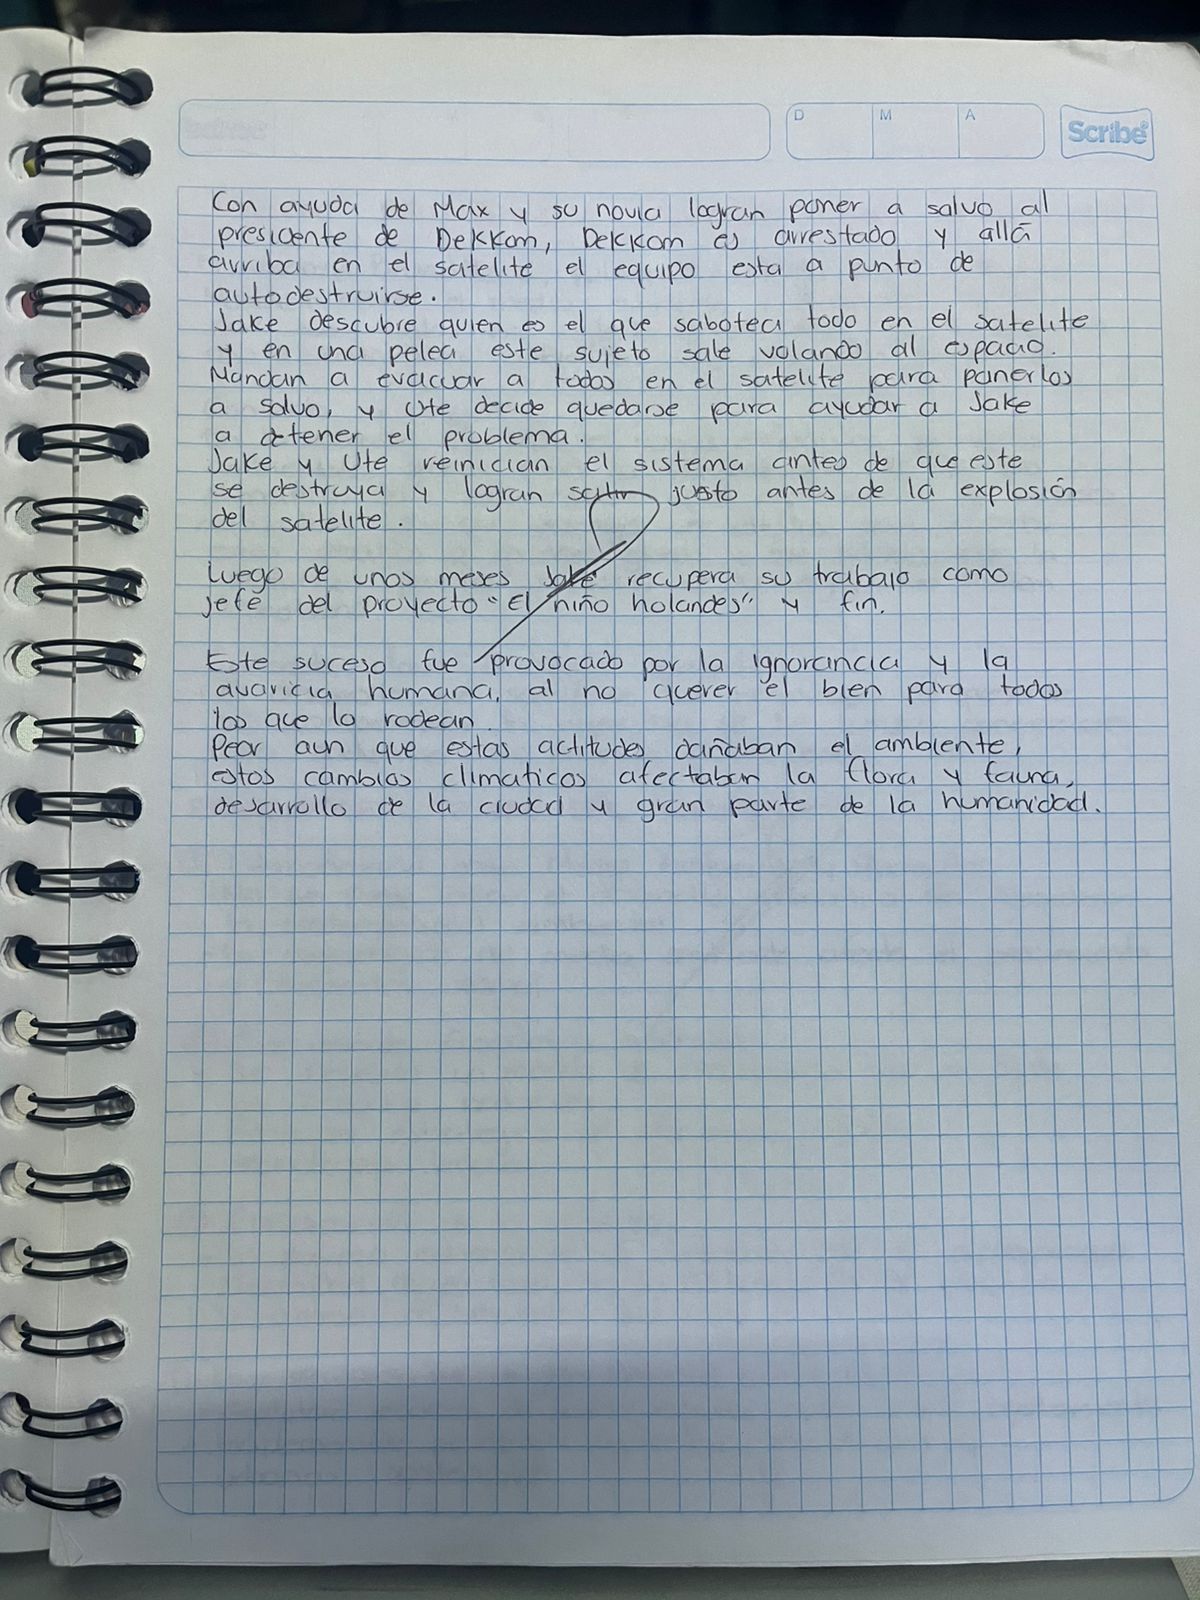 D M A
Scribe
Con ayuda de Max y su novia logran poner a salvo al
presidente de Dekkom, Dekkom es arrestado y allá
arriba en el satelite el equipo esta a punto de
autodestruirse.
Jake descubre quien es el que sabotea todo en el satelite
y en una pelea este sujeto sale volando al espacio.
Mandan a evacuar a todos en el satelite para ponerlos
a salvo, y Ute decide quedarse para ayudar a Jake
a detener el problema.
Jake y Ute reinician el sistema antes de que este
se destruya y logran salir justo antes de la explosión
del satelite.
Luego de unos meses Jake recupera su trabajo como
jefe del proyecto "El niño holandes" y fin.
Este suceso fue provocado por la ignorancia y la
avaricia humana, al no querer el bien para todos
los que lo rodean.
Peor aun que estas actitudes dañaban el ambiente,
estos cambios climaticos afectaban la flora y fauna,
desarrollo de la ciudad y gran parte de la humanidad.